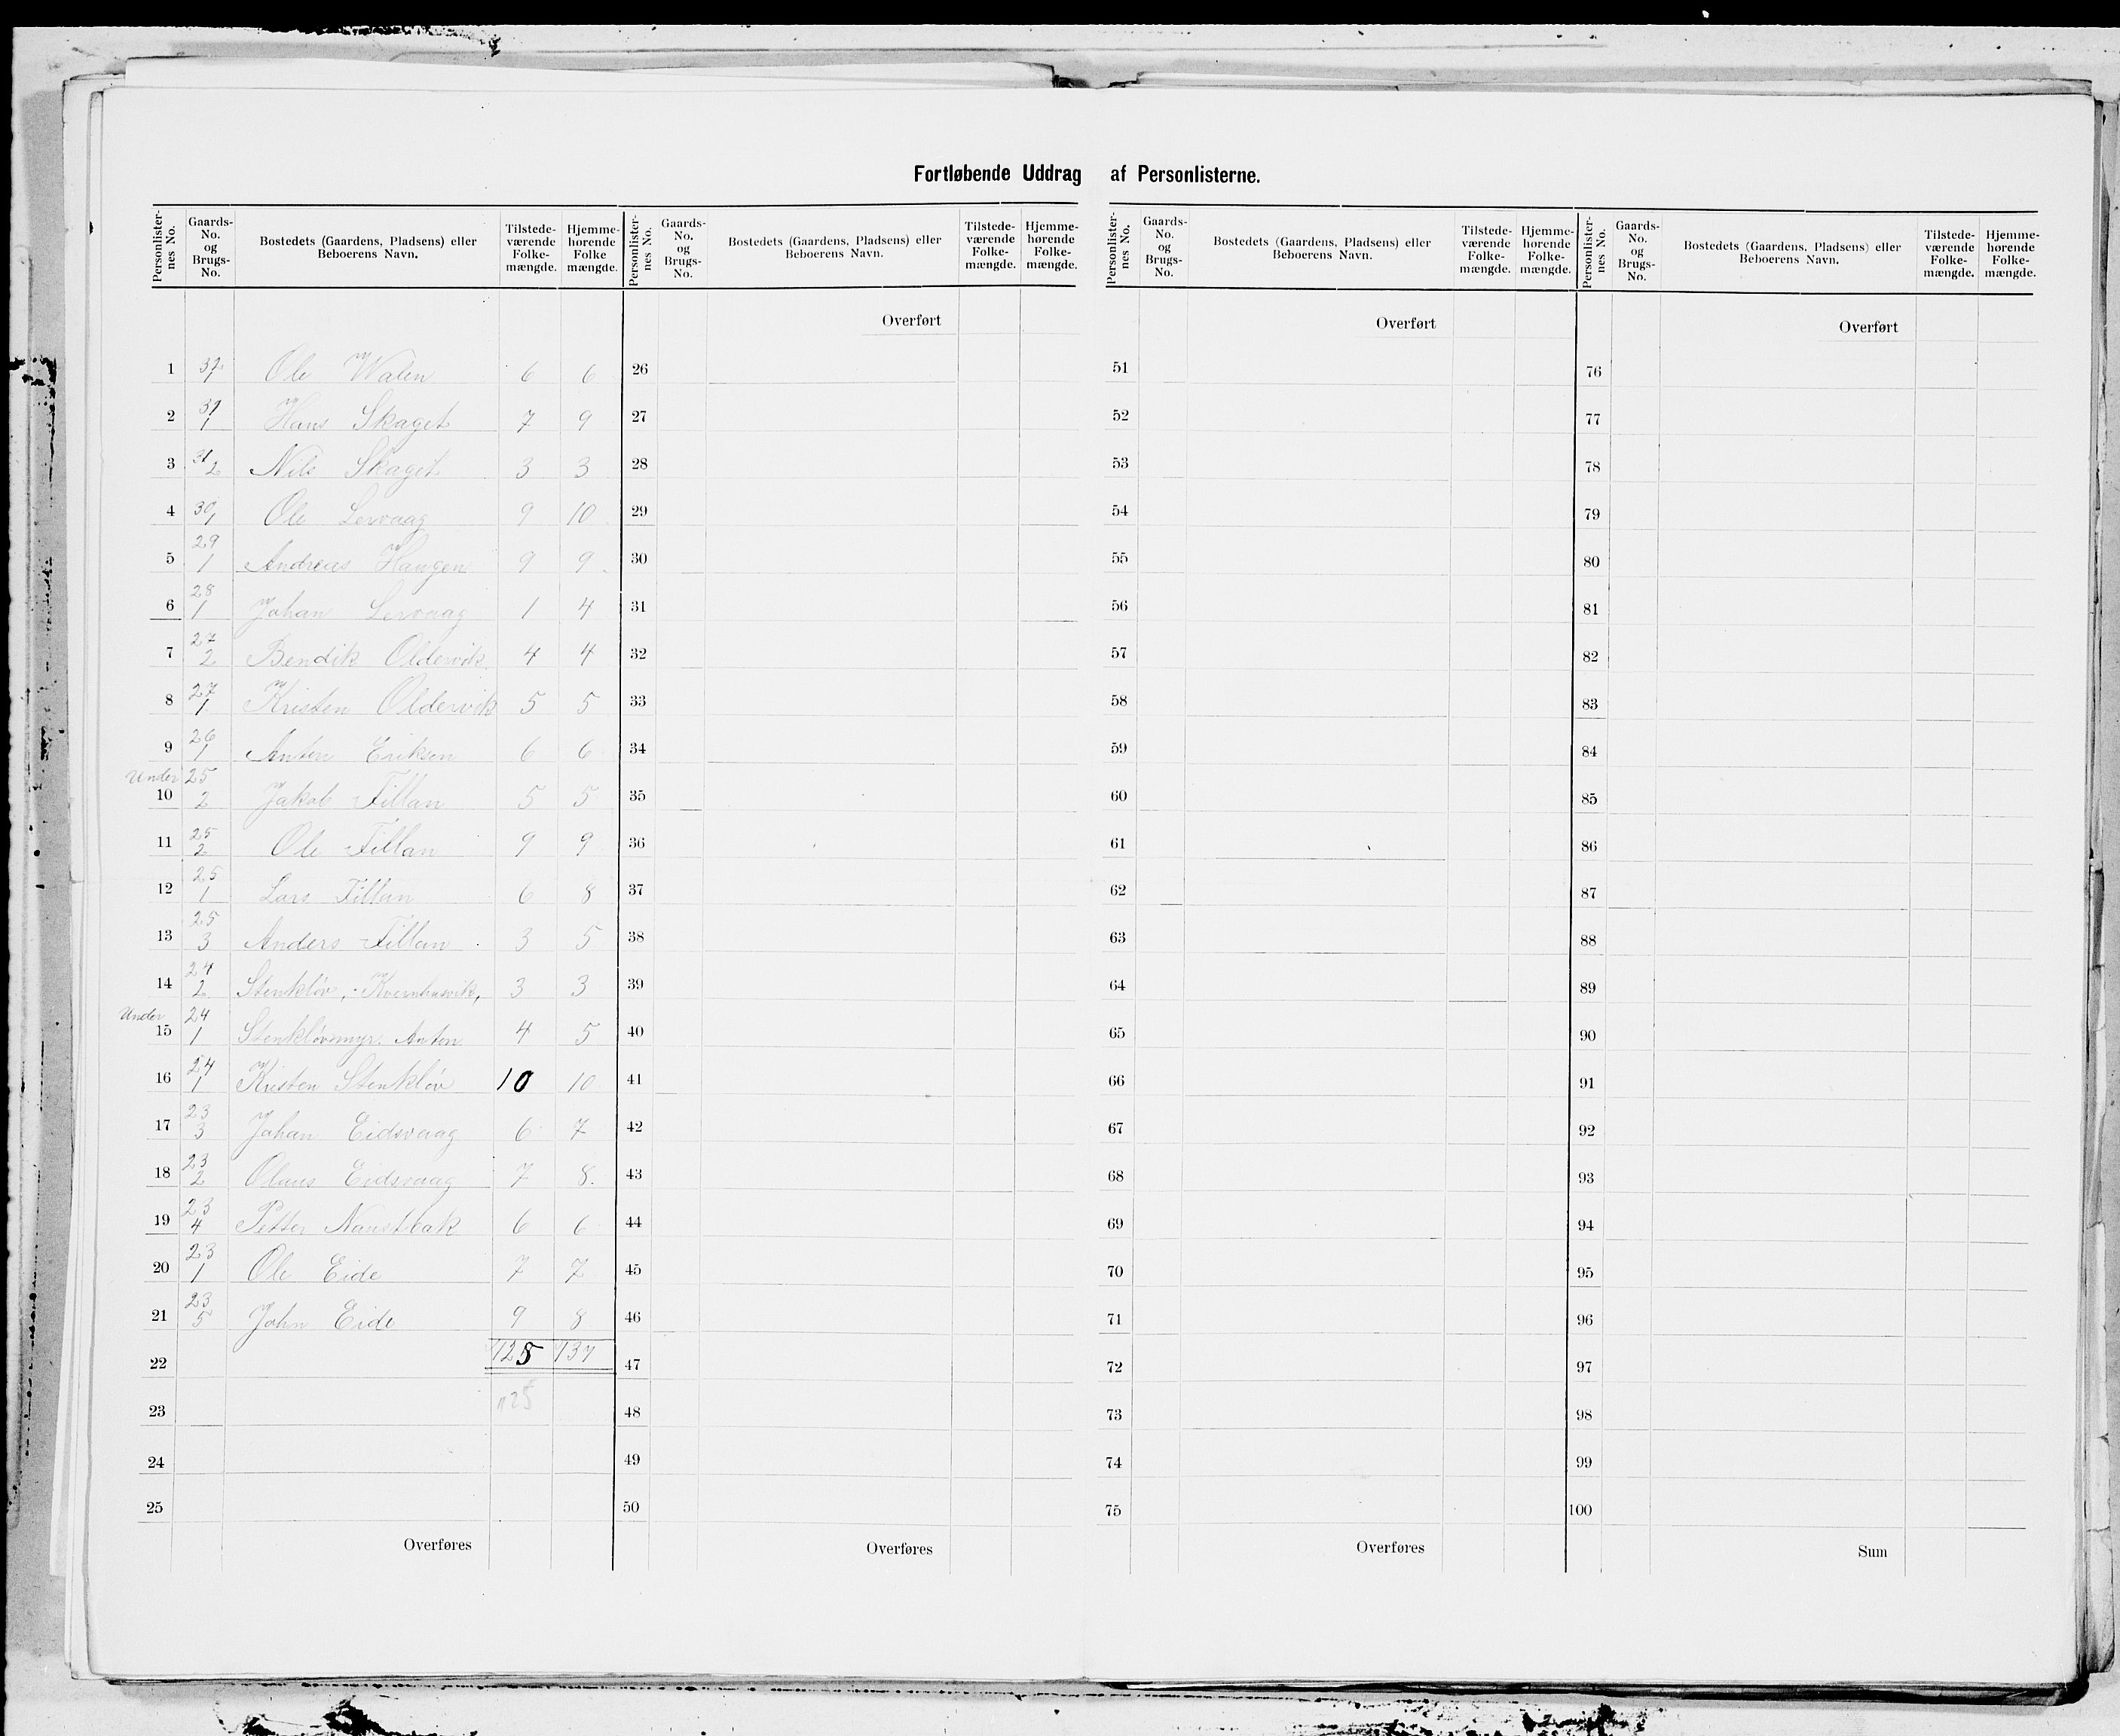 Fortløbende Uddrag af Personlisterne.
Personlisternes No. | Gaards-No. og Brugs-No. | Bostedets (Gaardens, Pladsens) eller Beboerens Navn. | Tilstedeværende Folkemængde. | Hjemmehørende Folkemængde.
Personlisternes No. | Gaards-No. og Brugs-No. | Bostedets (Gaardens, Pladsens) eller Beboerens Navn. | Tilstedeværende Folkemængde. | Hjemmehørende Folkemængde.
Personlisternes No. | Gaards-No. og Brugs-No. | Bostedets (Gaardens, Pladsens) eller Beboerens Navn. | Tilstedeværende Folkemængde. | Hjemmehørende Folkemængde.
Personlisternes No. | Gaards-No. og Brugs-No. | Bostedets (Gaardens, Pladsens) eller Beboerens Navn. | Tilstedeværende Folkemængde. | Hjemmehørende Folkemængde.
Overført Overført Overført
1 32/1 Ole Walen 6 6 26 51 76
2 31/1 Hans Skaget 7 9 27 52 77
3 31/2 Nils Skaget 3 3 28 53 78
4 30/1 Ole Lervaag 9 10 29 54 79
5 29/1 Andreas Haugen 9 9 30 55 80
6 28/1 Johan Lervaag 1 4 31 56 81
7 27/2 Bendik Oldervik 4 4 32 57 82
8 27/1 Kristen Oldervik 5 5 33 58 83
9 26/1 Anten Eriksen 6 6 34 59 84
Under
10 25/2 Jakob Fillan 5 5 35 60 85
11 25/2 Ole Fillan 9 9 36 61 86
12 25/1 Lars Fillan 6 8 37 62 87
13 25/3 Anders Fillan 3 5 38 63 88
14 24/2 Stenkløv, Kvernhusvik, 3 3 39 64 89
Under
15 24/1 Stenkløvmyr. Anton 4 5 40 65 90
16 24/1 Kristen Stenkløv 10 10 41 66 91
17 23/3 Johan Eidsvaag 6 7 42 67 92
18 23/2 Olaus Eidsvaag 7 8. 43 68 93
19 23/4 Petter Naustbak 6 6 44 69 94
20 23/1 Ole Eide 7 7 45 70 95
21 23/5 John Eide 9 8 46 71 96
22 125 137 47 72 97
23 125 48 73 98
24 49 74 99
25 50 75 100
Overføres Overføres Overføres Sum